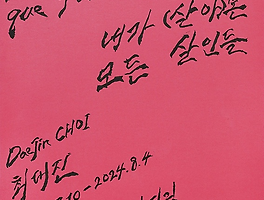 que
내가 (살아)온
모든 살인들
Daejin CHOI
최대진
10-2024.8.4